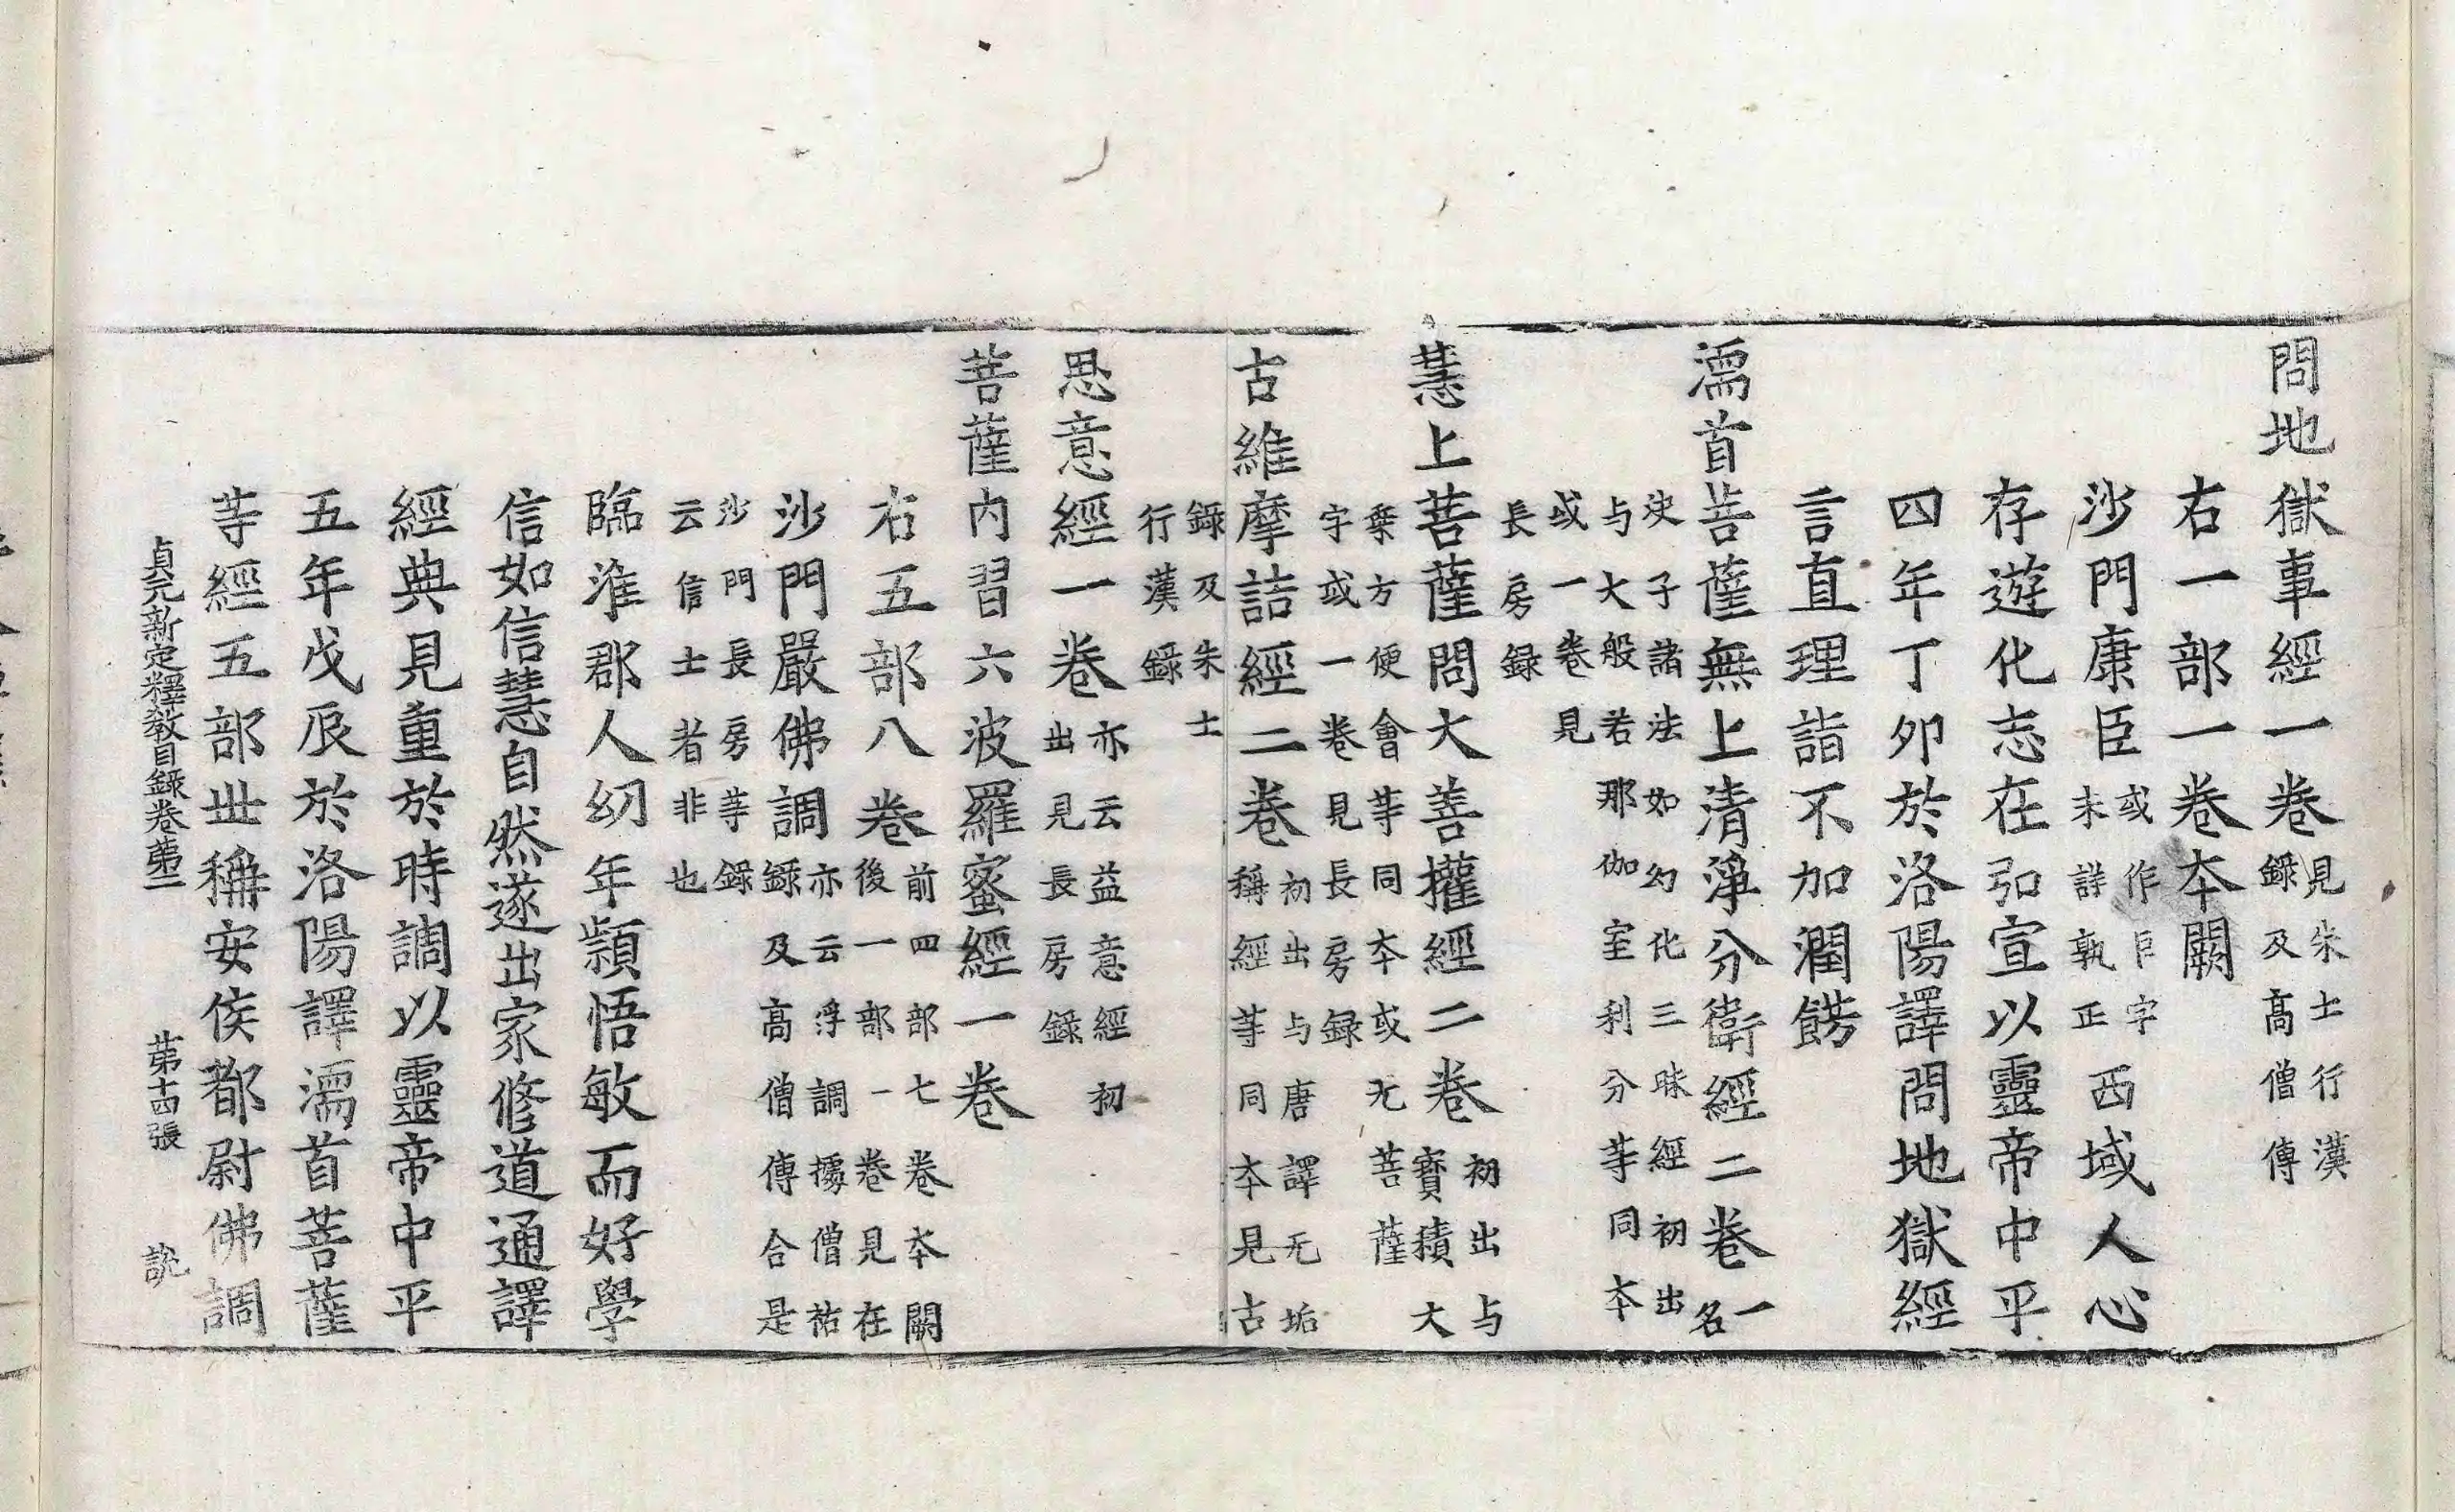 問地獄事經一卷見朱士行漢錄及高僧傳
右一部一卷本闕
沙門康臣或作巨字未詳孰正西域人心
存遊化志在弘宣以靈帝中平
四年丁卯於洛陽譯問地獄經
言直理詣不加潤餝
濡首菩薩無上清淨分衛經二卷一名
決子諸法如幻化三昧經初出
与大般若那伽室利分等同本
或一卷見
長房録
慧上菩薩問大善權經二卷初出与寶積大
乗方便會等同本或无菩薩
字或一卷見長房録
古維摩詰經二卷初出与唐譯无垢稱經等同本見古
錄及朱士
行漢錄
思意經一卷亦云益意經初出見長房錄
菩薩内習六波羅蜜經一卷
右五部八卷前四部七卷本闕後一部一卷見在
沙門嚴佛調亦云浮調據僧祐録及高僧傳合是
沙門長房等錄
云信士者非也
臨淮郡人幼年穎悟敏而好學
信如信慧自然遂出家修道通譯
經典見重於時調以靈帝中平
五年戊辰於洛陽譯濡首菩薩
等經五部世稱安侯都尉佛調
貞元新定釋教目錄卷第二 第十四張